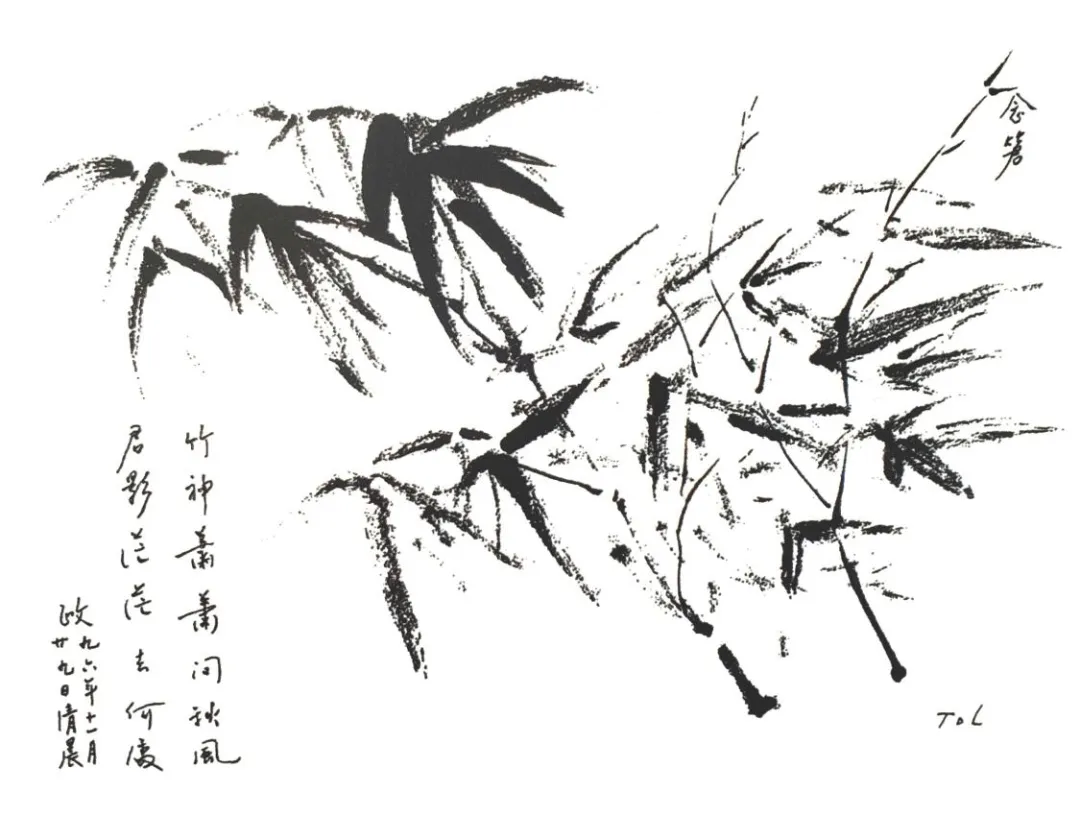 念
竹神蕭蕭问秋風
君影茫茫去何處
政 九六年十一月
廿九日清晨
TOL